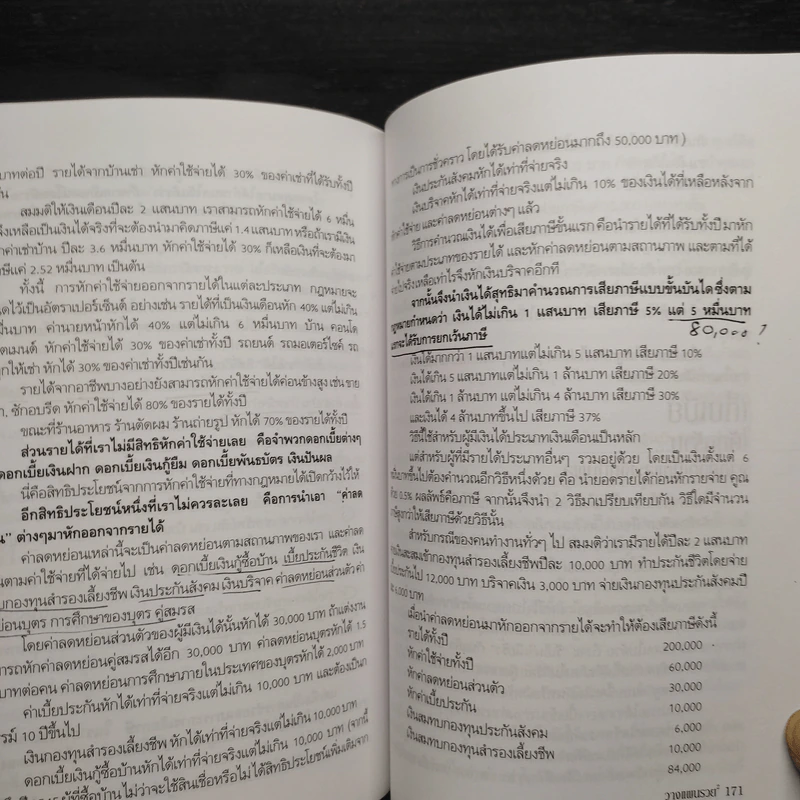 บาทต่อปี รายได้จากบ้านเช่า หักค่าใช้จ่ายได้ 30% ของค่าเช่าที่ได้รับทั้งปี
สมมติให้เงินเดือนปีละ 2 แสนบาท เราสามารถหักค่าใช้จ่ายได้ 6 หมื่น
จึงเหลือเป็นเงินได้จริงที่จะต้องนำมาคิดภาษีแค่ 1.4 แสนบาท หรือถ้าเรามีเงิน
ค่าเช่าบ้าน ปีละ 3.6 หมื่นบาท หักค่าใช้จ่ายได้ 30% ก็เหลือเงินที่จะต้องมา
ภาษีแค่ 2.52 หมื่นบาท เป็นต้น
ทั้งนี้ การหักค่าใช้จ่ายออกจากรายได้ในแต่ละประเภท กฎหมายจะ
ดไว้เป็นอัตราเปอร์เซ็นต์ อย่างเช่น รายได้ที่เป็นเงินเดือนหัก 40% แต่ไม่เกิน
หมื่นบาท ค่านายหน้าหักได้ 40% แต่ไม่เกิน 6 หมื่นบาท บ้าน คอนโด
ตเมนต์ หักค่าใช้จ่ายได้ 30% ของค่าเช่าทั้งปี รถยนต์ รถมอเตอร์ไซค์ รถ
ถูกให้เช่า หักได้ 30% ของค่าเช่าทั้งปีเช่นกัน
รายได้จากอาชีพบางอย่างยังสามารถหักค่าใช้จ่ายได้ค่อนข้างสูง เช่น ขาย
า, ซักอบรีด หักค่าใช้จ่ายได้ 80% ของรายได้ทั้งปี
ขณะที่ร้านอาหาร ร้านตัดผม ร้านถ่ายรูป หักได้ 70% ของรายได้ทั้งปี
ส่วนรายได้ที่เราไม่มีสิทธิหักค่าใช้จ่ายเลย คือจำพวกดอกเบี้ยต่างๆ
ดอกเบี้ยเงินฝาก ดอกเบี้ยเงินกู้ยืม ดอกเบี้ยพันธบัตร เงินปันผล
นี่คือสิทธิประโยชน์จากการหักค่าใช้จ่ายที่ทางกฎหมายได้เปิดกว้างไว้ให้
อีกสิทธิประโยชน์หนึ่งที่เราไม่ควรละเลย คือการนำเอา “ค่าลด
น” ต่างๆมาหักออกจากรายได้
ค่าลดหย่อนเหล่านี้จะเป็นค่าลดหย่อนตามสถานภาพของเรา และค่าลด
นตามค่าใช้จ่ายที่ได้จ่ายไป เช่น ดอกเบี้ยเงินกู้ซื้อบ้าน เบี้ยประกันชีวิต เงิน
บกองทุนสำรองเลี้ยงชีพ เงินประกันสังคม เงินบริจาค ค่าลดหย่อนส่วนตัว ค่า
ย่อนบุตร การศึกษาของบุตร คู่สมรส
โดยค่าลดหย่อนส่วนตัวของผู้มีเงินได้นั้นหักได้ 30,000 บาท ถ้าแต่งงาน
ารถหักค่าลดหย่อนคู่สมรสได้อีก 30,000 บาท ค่าลดหย่อนบุตรหักได้ 1.5
บาทต่อคน ค่าลดหย่อนการศึกษาภายในประเทศของบุตรหักได้ 2,000 บาท
ค่าเบี้ยประกันหักได้เท่าที่จ่ายจริงแต่ไม่เกิน 10,000 บาท และต้องเป็นก
รม์ 10 ปีขึ้นไป
เงินกองทุนสำรองเลี้ยงชีพ หักได้เท่าที่จ่ายจริงแต่ไม่เกิน 10,000 บาท
ดอกเบี้ยเงินกู้ซื้อบ้านหักได้เท่าที่จ่ายจริงแต่ไม่เกิน 10,000 บาท (จากนี้
ผู้ที่ซื้อบ้าน ไม่ว่าจะใช้สินเชื่อหรือไม่ ได้สิทธิประโยชน์เพิ่มเติมจาก
เป็นการชั่วคราว โดยได้รับค่าลดหย่อนมากถึง 50,000 บาท )
เงินประกันสังคมหักได้เท่าที่จ่ายจริง
เงินบริจาคหักได้เท่าที่จ่ายจริงแต่ไม่เกิน 10% ของเงินได้ที่เหลือหลังจาก
หักค่าใช้จ่าย และค่าลดหย่อนต่างๆ แล้ว
วิธีการคำนวณเงินได้เพื่อเสียภาษีขั้นแรก คือนำรายได้ที่ได้รับทั้งปี มาหัก
ค่าใช้จ่ายตามประเภทของรายได้ และหักค่าลดหย่อนตามสถานภาพ และตามที่ได้
จ่ายไปจริงเหลือเท่าไรจึงหักเงินบริจาคอีกที
จากนั้นจึงนำเงินได้สุทธิมาคำนวณการเสียภาษีแบบขั้นบันได ซึ่งตาม
กฎหมายกำหนดว่า เงินได้ไม่เกิน 1 แสนบาท เสียภาษี 5% แต่ 5 หมื่นบาท
แรกจะได้รับการยกเว้นภาษี
80,000 ?
เงินได้มากกว่า 1 แสนบาทแต่ไม่เกิน 5 แสนบาท เสียภาษี 10%
เงินได้เกิน 5 แสนบาทแต่ไม่เกิน 1 ล้านบาท เสียภาษี 20%
เงินได้เกิน 1 ล้านบาท แต่ไม่เกิน 4 ล้านบาท เสียภาษี 30%
และเงินได้ 4 ล้านบาทขึ้นไป เสียภาษี 37%
วิธีนี้ใช้สำหรับผู้มีเงินได้ประเภทเงินเดือนเป็นหลัก
แต่สำหรับผู้ที่มีรายได้ประเภทอื่นๆ รวมอยู่ด้วย โดยเป็นเงินตั้งแต่ 6
หมื่นบาทขึ้นไปต้องคำนวณอีกวิธีหนึ่งด้วย คือ นำยอดรายได้ก่อนหักรายจ่าย คูณ
ด้วย 0.5% ผลลัพธ์คือภาษี จากนั้นจึงนำ 2 วิธีมาเปรียบเทียบกัน วิธีใดมีจำนวน
ภาษีสูงกว่าให้เสียภาษีด้วยวิธีนั้น
สำหรับกรณีของคนทำงานทั่วๆ ไป สมมติว่าเรามีรายได้ปีละ 2 แสนบาท
จ่ายเงินสะสมเข้ากองทุนสำรองเลี้ยงชีพปีละ 10,000 บาท ทำประกันชีวิตโดยจ่าย
เบี้ยประกันไป 12,000 บาท บริจาคเงิน 3,000 บาท จ่ายเงินกองทุนประกันสังคมปี
ละ 6,000 บาท
เมื่อนำค่าลดหย่อนมาหักออกจากรายได้จะทำให้ต้องเสียภาษีดังนี้
รายได้ทั้งปี 200,000
หักค่าใช้จ่ายทั้งปี 60,000
หักค่าลดหย่อนส่วนตัว 30,000
หักค่าเบี้ยประกัน 10,000
เงินสมทบกองทุนประกันสังคม 6,000
เงินสมทบกองทุนสำรองเลี้ยงชีพ 10,000
84,000
วางแผนรวย² 171